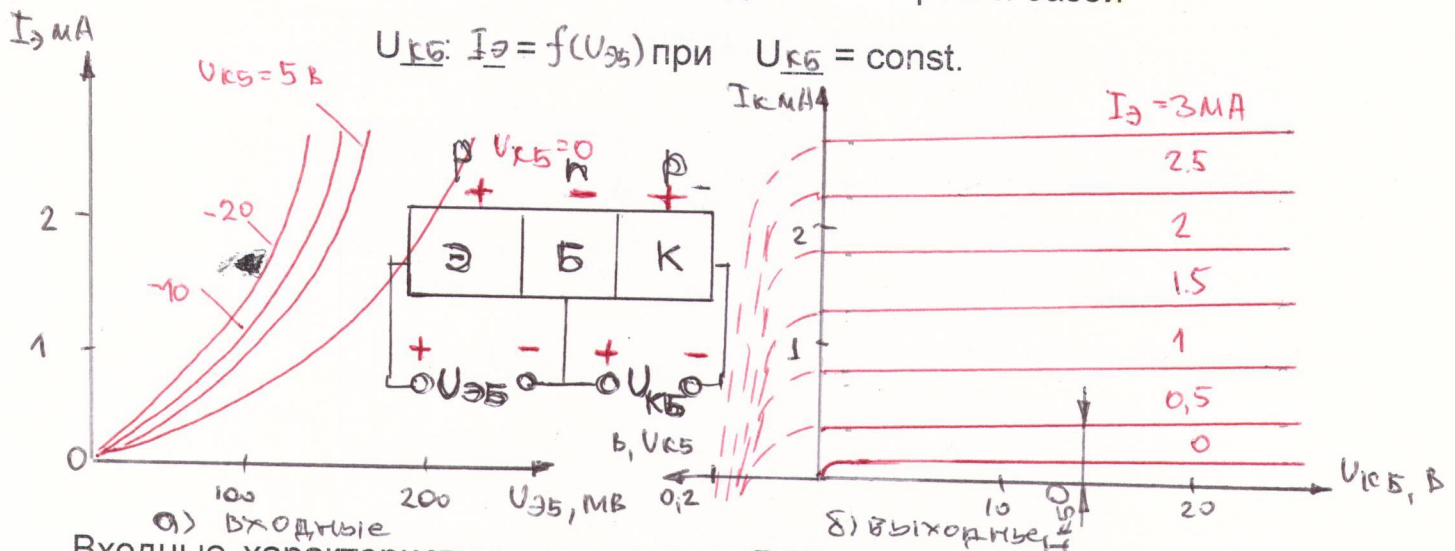 U_КБ: I_Э = f(U_ЭБ) при U_КБ = const.
I_Э мА
U_КБ = 5 В
-20
-10
2
1
0
100
200
U_ЭБ, мВ
а) входные
U_КБ = 0
p n p
+ - + -
Э Б К
+ - + -
U_ЭБ U_КБ
I_К мА
I_Э = 3 мА
2.5
2
1.5
1
0,5
0
2
1
В, U_КБ
0,2
10
20
U_КБ, В
б) выходные,